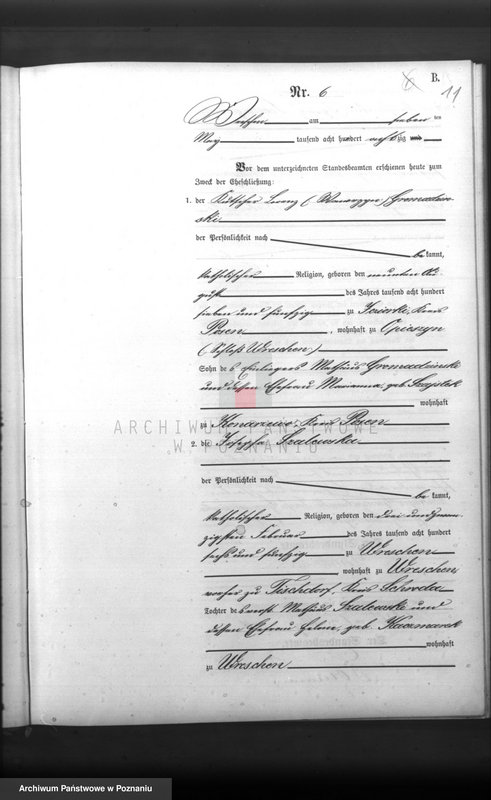 B.
11
Nr. 6
Wreschen am sieben ten
May tausend acht hundert achtzig und
Vor dem unterzeichneten Standesbeamten erschienen heute zum
Zweck der Eheschließung:
1. der Kutscher Lorenz (Wawrzyn) Gromadzin-
ski
der Persönlichkeit nach
be kannt,
katholischer Religion, geboren den neunten Au-
gust des Jahres tausend acht hundert
sieben und fünfzig zu Kreis
Posen, wohnhaft zu Opieszyn
(Schloß Wreschen)
Sohn des Mathäus Gromadzinski
und dessen Ehefrau Marianna, geb.
wohnhaft
zu Konarzewo, Kreis Posen
2. die Josepha Szalewska
der Persönlichkeit nach
be kannt,
katholischer Religion, geboren den drei und zwan-
zigsten Februar des Jahres tausend acht hundert
sechs und fünfzig zu Wreschen
wohnhaft zu Wreschen
vorher zu Tischdorf, Kreis Schroda
Tochter des verst. Mathäus Szalewski und
dessen Ehefrau Helene, geb. Kaczmarek
wohnhaft
zu Wreschen
ARCHIWUM PAŃSTWOWE
W POZNANIU
Archiwum Państwowe w Poznaniu